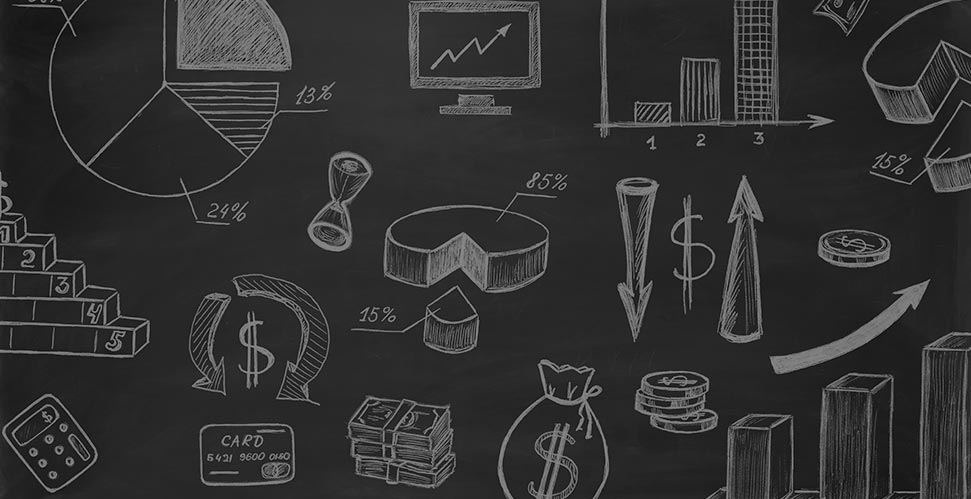 13%
24%
1 2 3
15%
85%
15%
$
$
$
1
2
3
4
5
$
$
$
CARD
5421 9600 0180
$
$